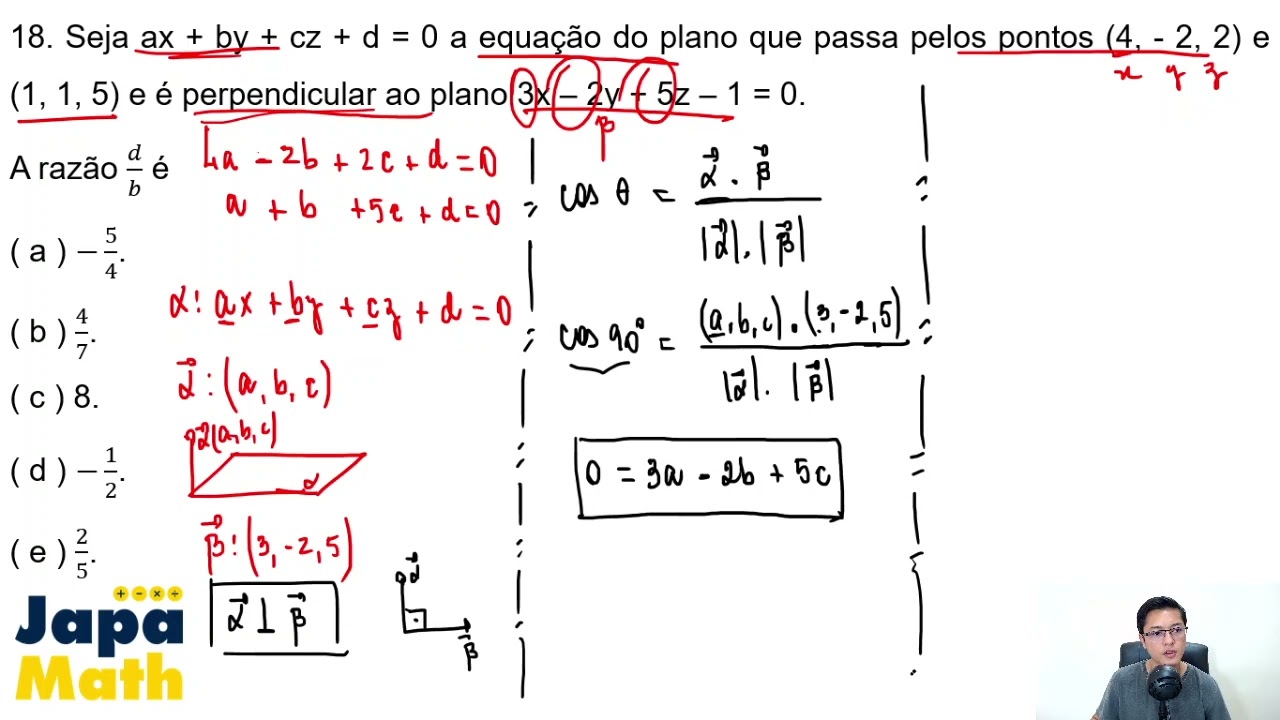 18. Seja ax + by + cz + d = 0 a equação do plano que passa pelos pontos (4, - 2, 2) e
x y z
(1, 1, 5) e é perpendicular ao plano 3x – 2y + 5z – 1 = 0.
β
A razão d/b é
( a ) – 5/4.
( b ) 4/7.
( c ) 8.
( d ) – 1/2.
( e ) 2/5.
4a - 2b + 2c + d = 0
a + b + 5c + d = 0
α: ax + by + cz + d = 0
α⃗ : (a, b, c)
α⃗ (a, b, c)
α
β⃗ : (3, -2, 5)
α⃗ ⊥ β⃗
α⃗
β⃗
cos θ = α⃗ . β⃗ / |α⃗| . |β⃗|
cos 90° = (a, b, c) . (3, -2, 5) / |α⃗| . |β⃗|
0 = 3a - 2b + 5c
+ - × ÷
Japa
Math